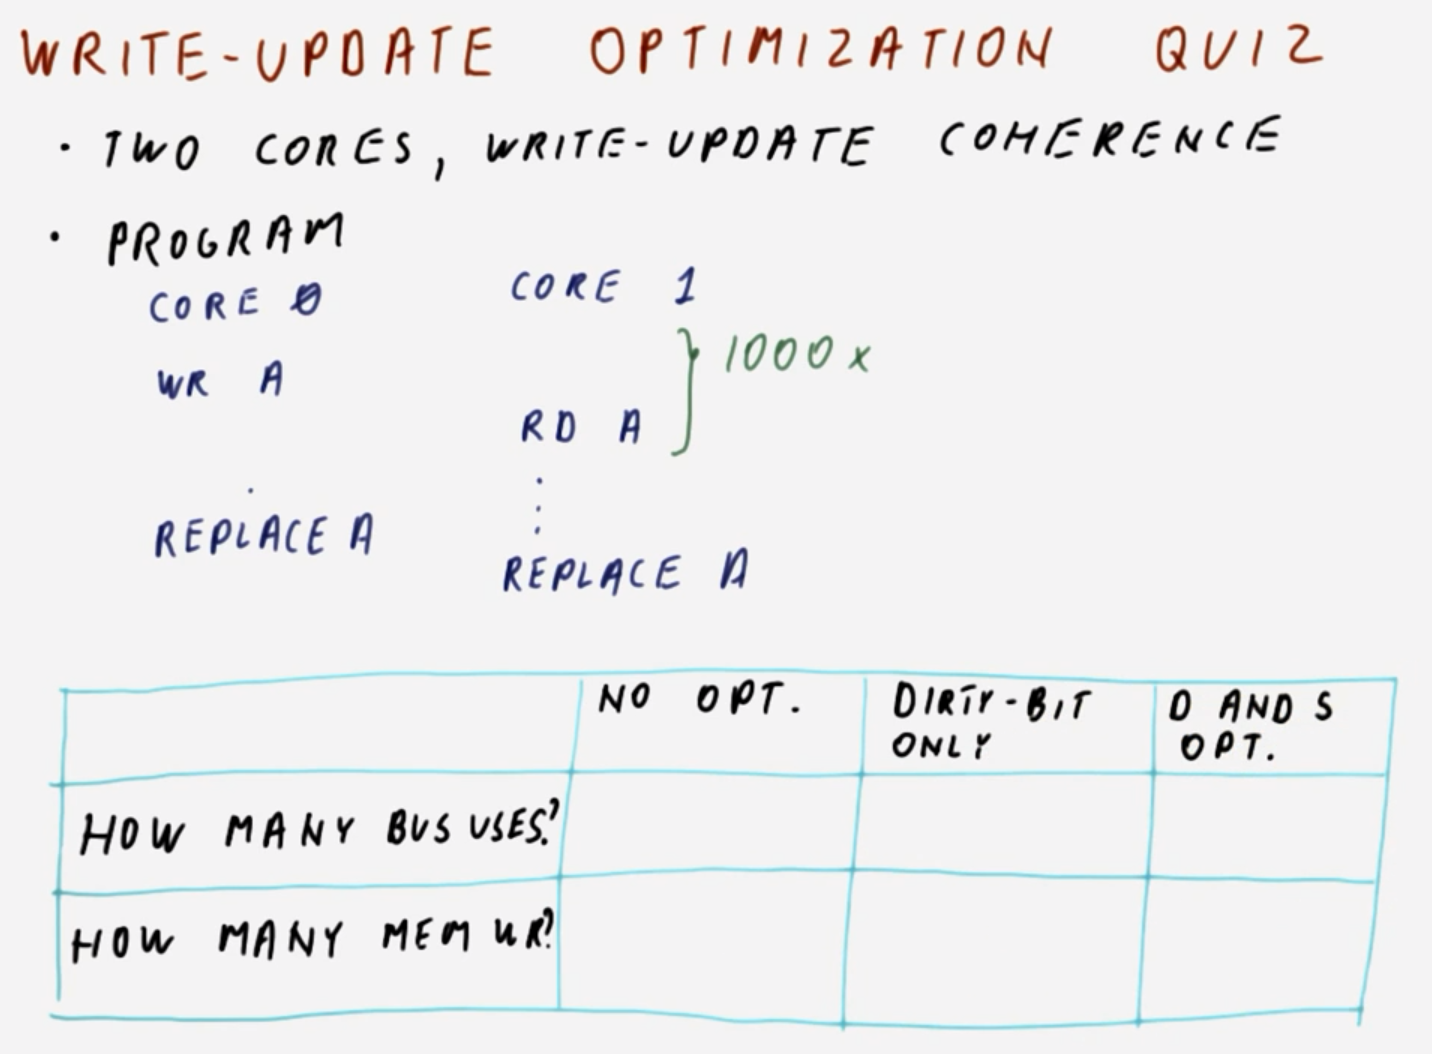 WRITE-UPDATE OPTIMIZATION QUIZ
· TWO CORES, WRITE-UPDATE COHERENCE
· PROGRAM
CORE 0 CORE 1
WR A } 1000x
RD A
REPLACE A
REPLACE A
NO OPT. DIRTY-BIT ONLY D AND S OPT.
HOW MANY BUS USES?
HOW MANY MEM WR?